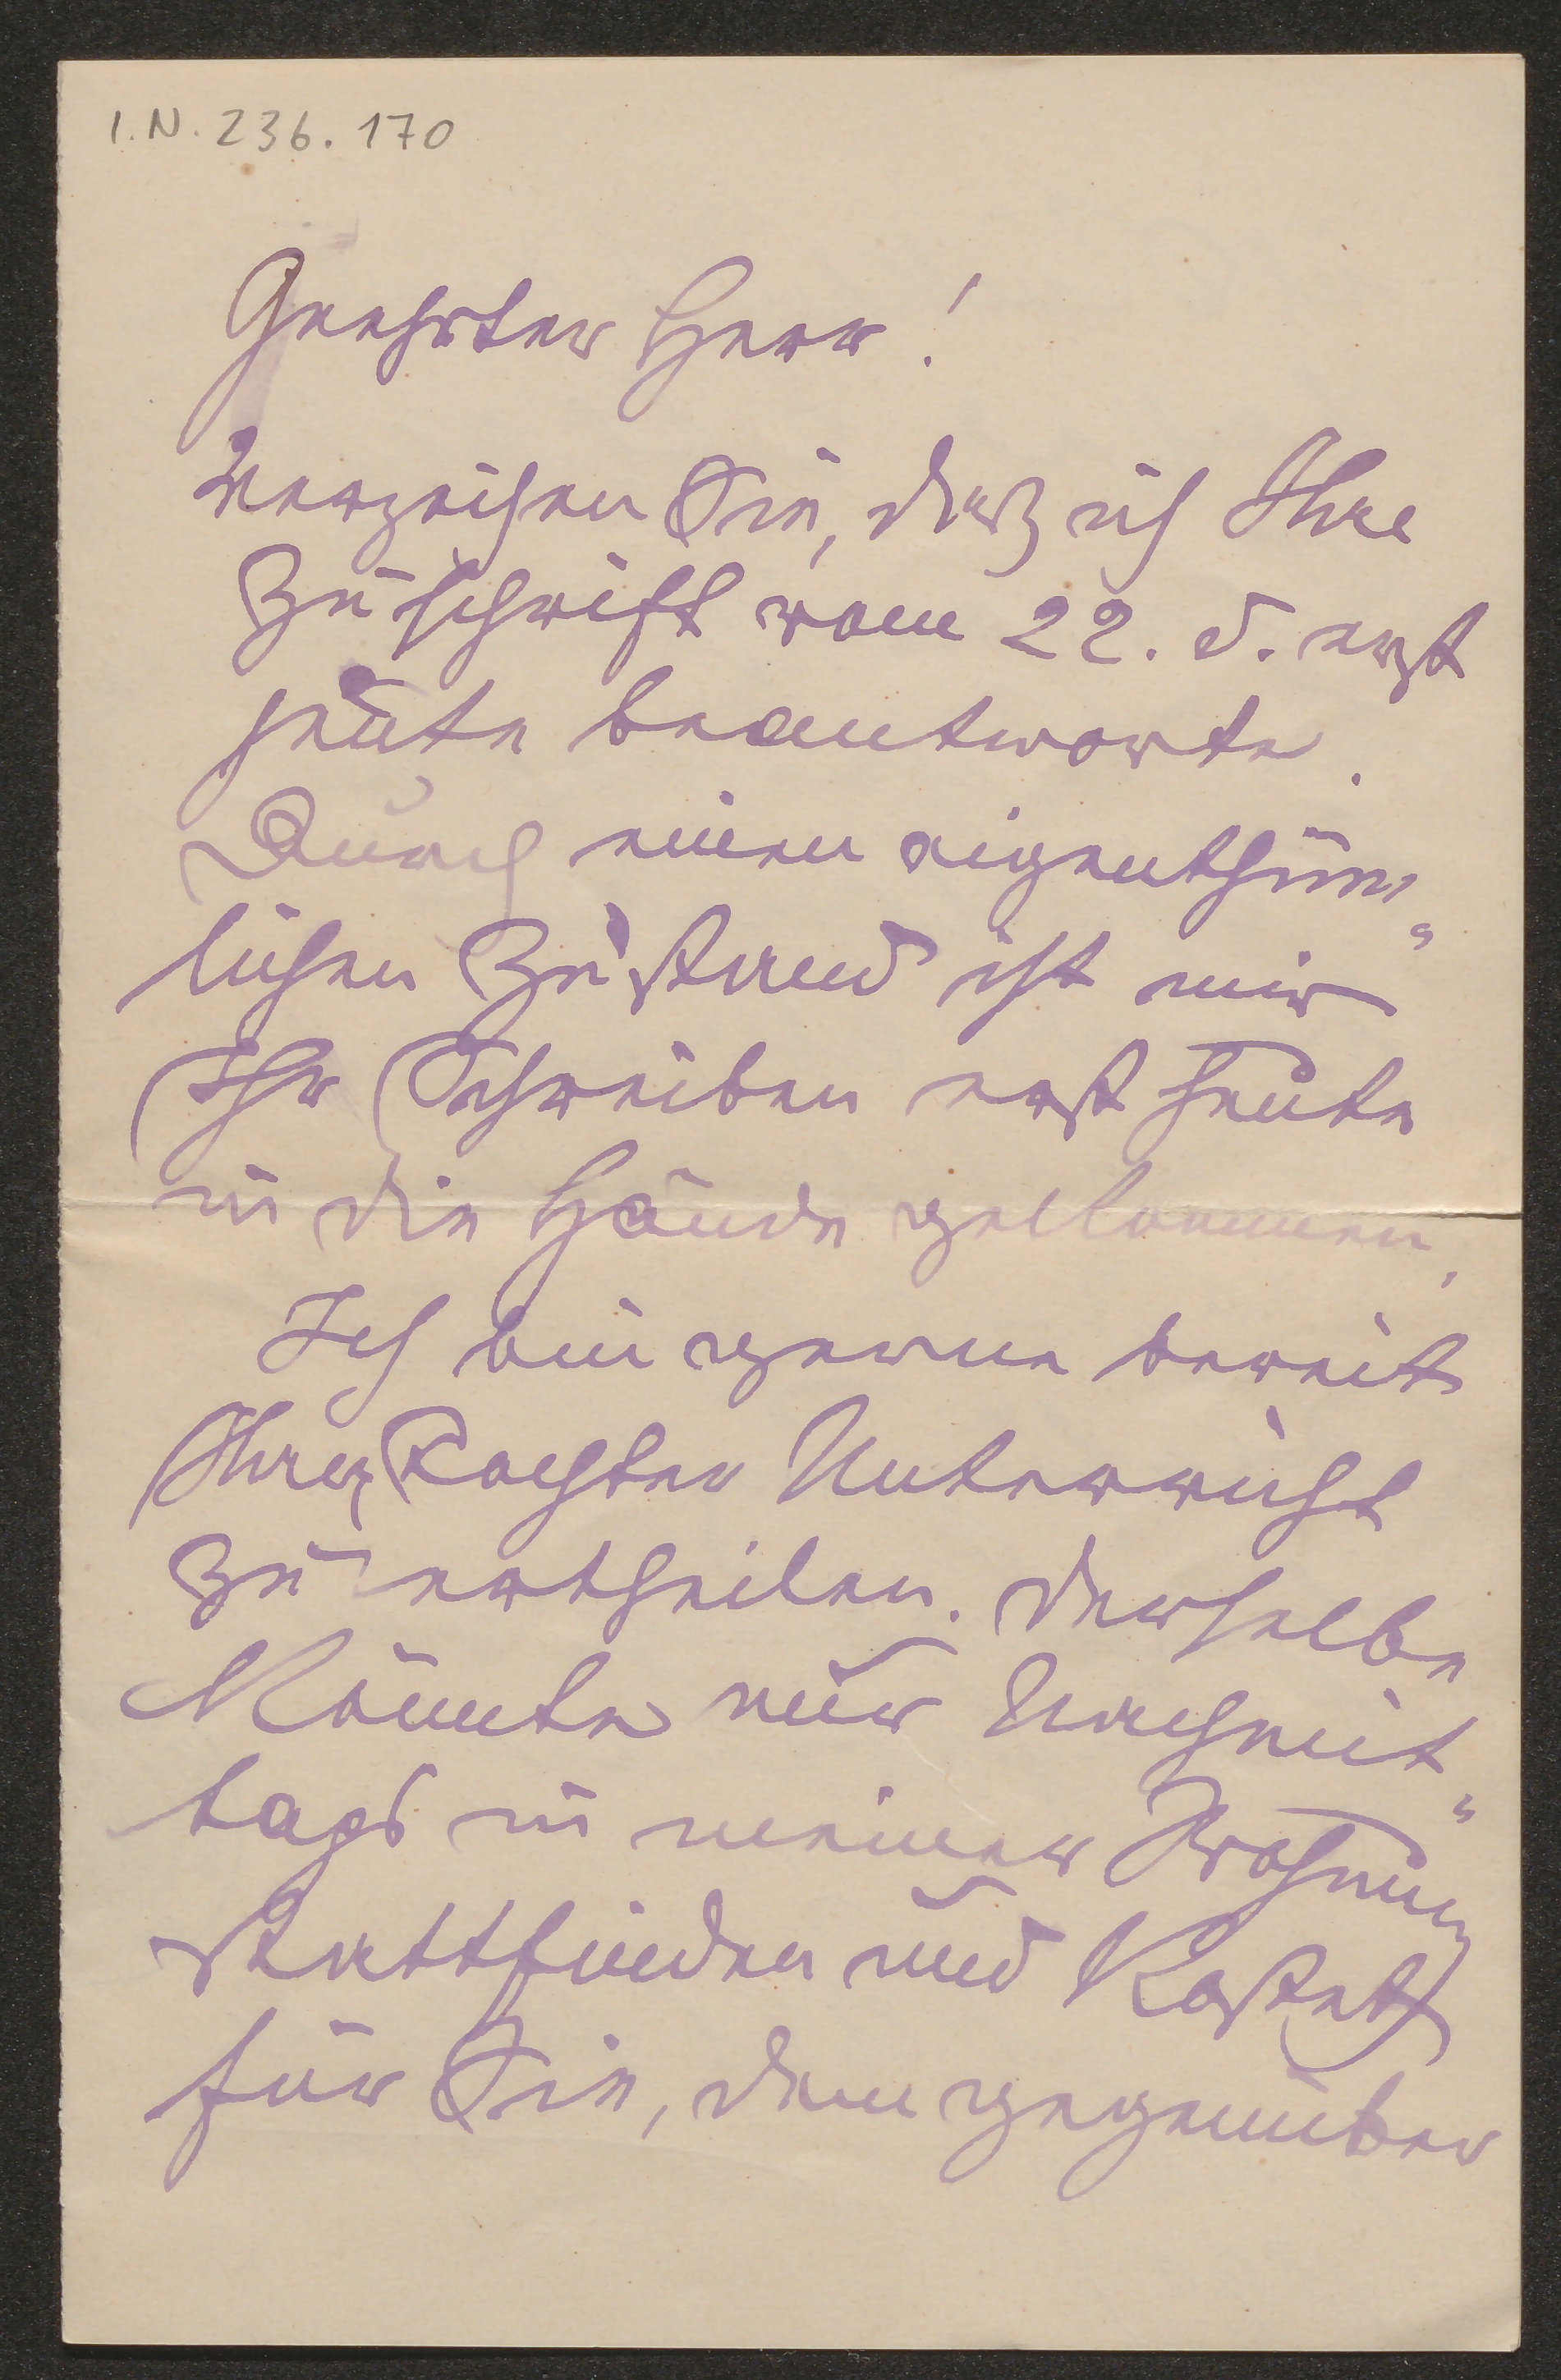 I.N. 236.170
Geehrter Herr!
Verzeihen Sie, daß ich Ihre
Zuschrift vom 22. d. erst
heute beantworte.
Durch einen eigenthüm„
lichen Zustand ist mir
Ihr Schreiben erst heute
in die Hände gekommen.
Ich bin gerne bereit
Ihrer Tochter Unterricht
zu ertheilen. Derselbe
könnte nur Nachmit„
tags in meiner Wohnung
stattfinden und kostet
für Sie, dem gegenüber